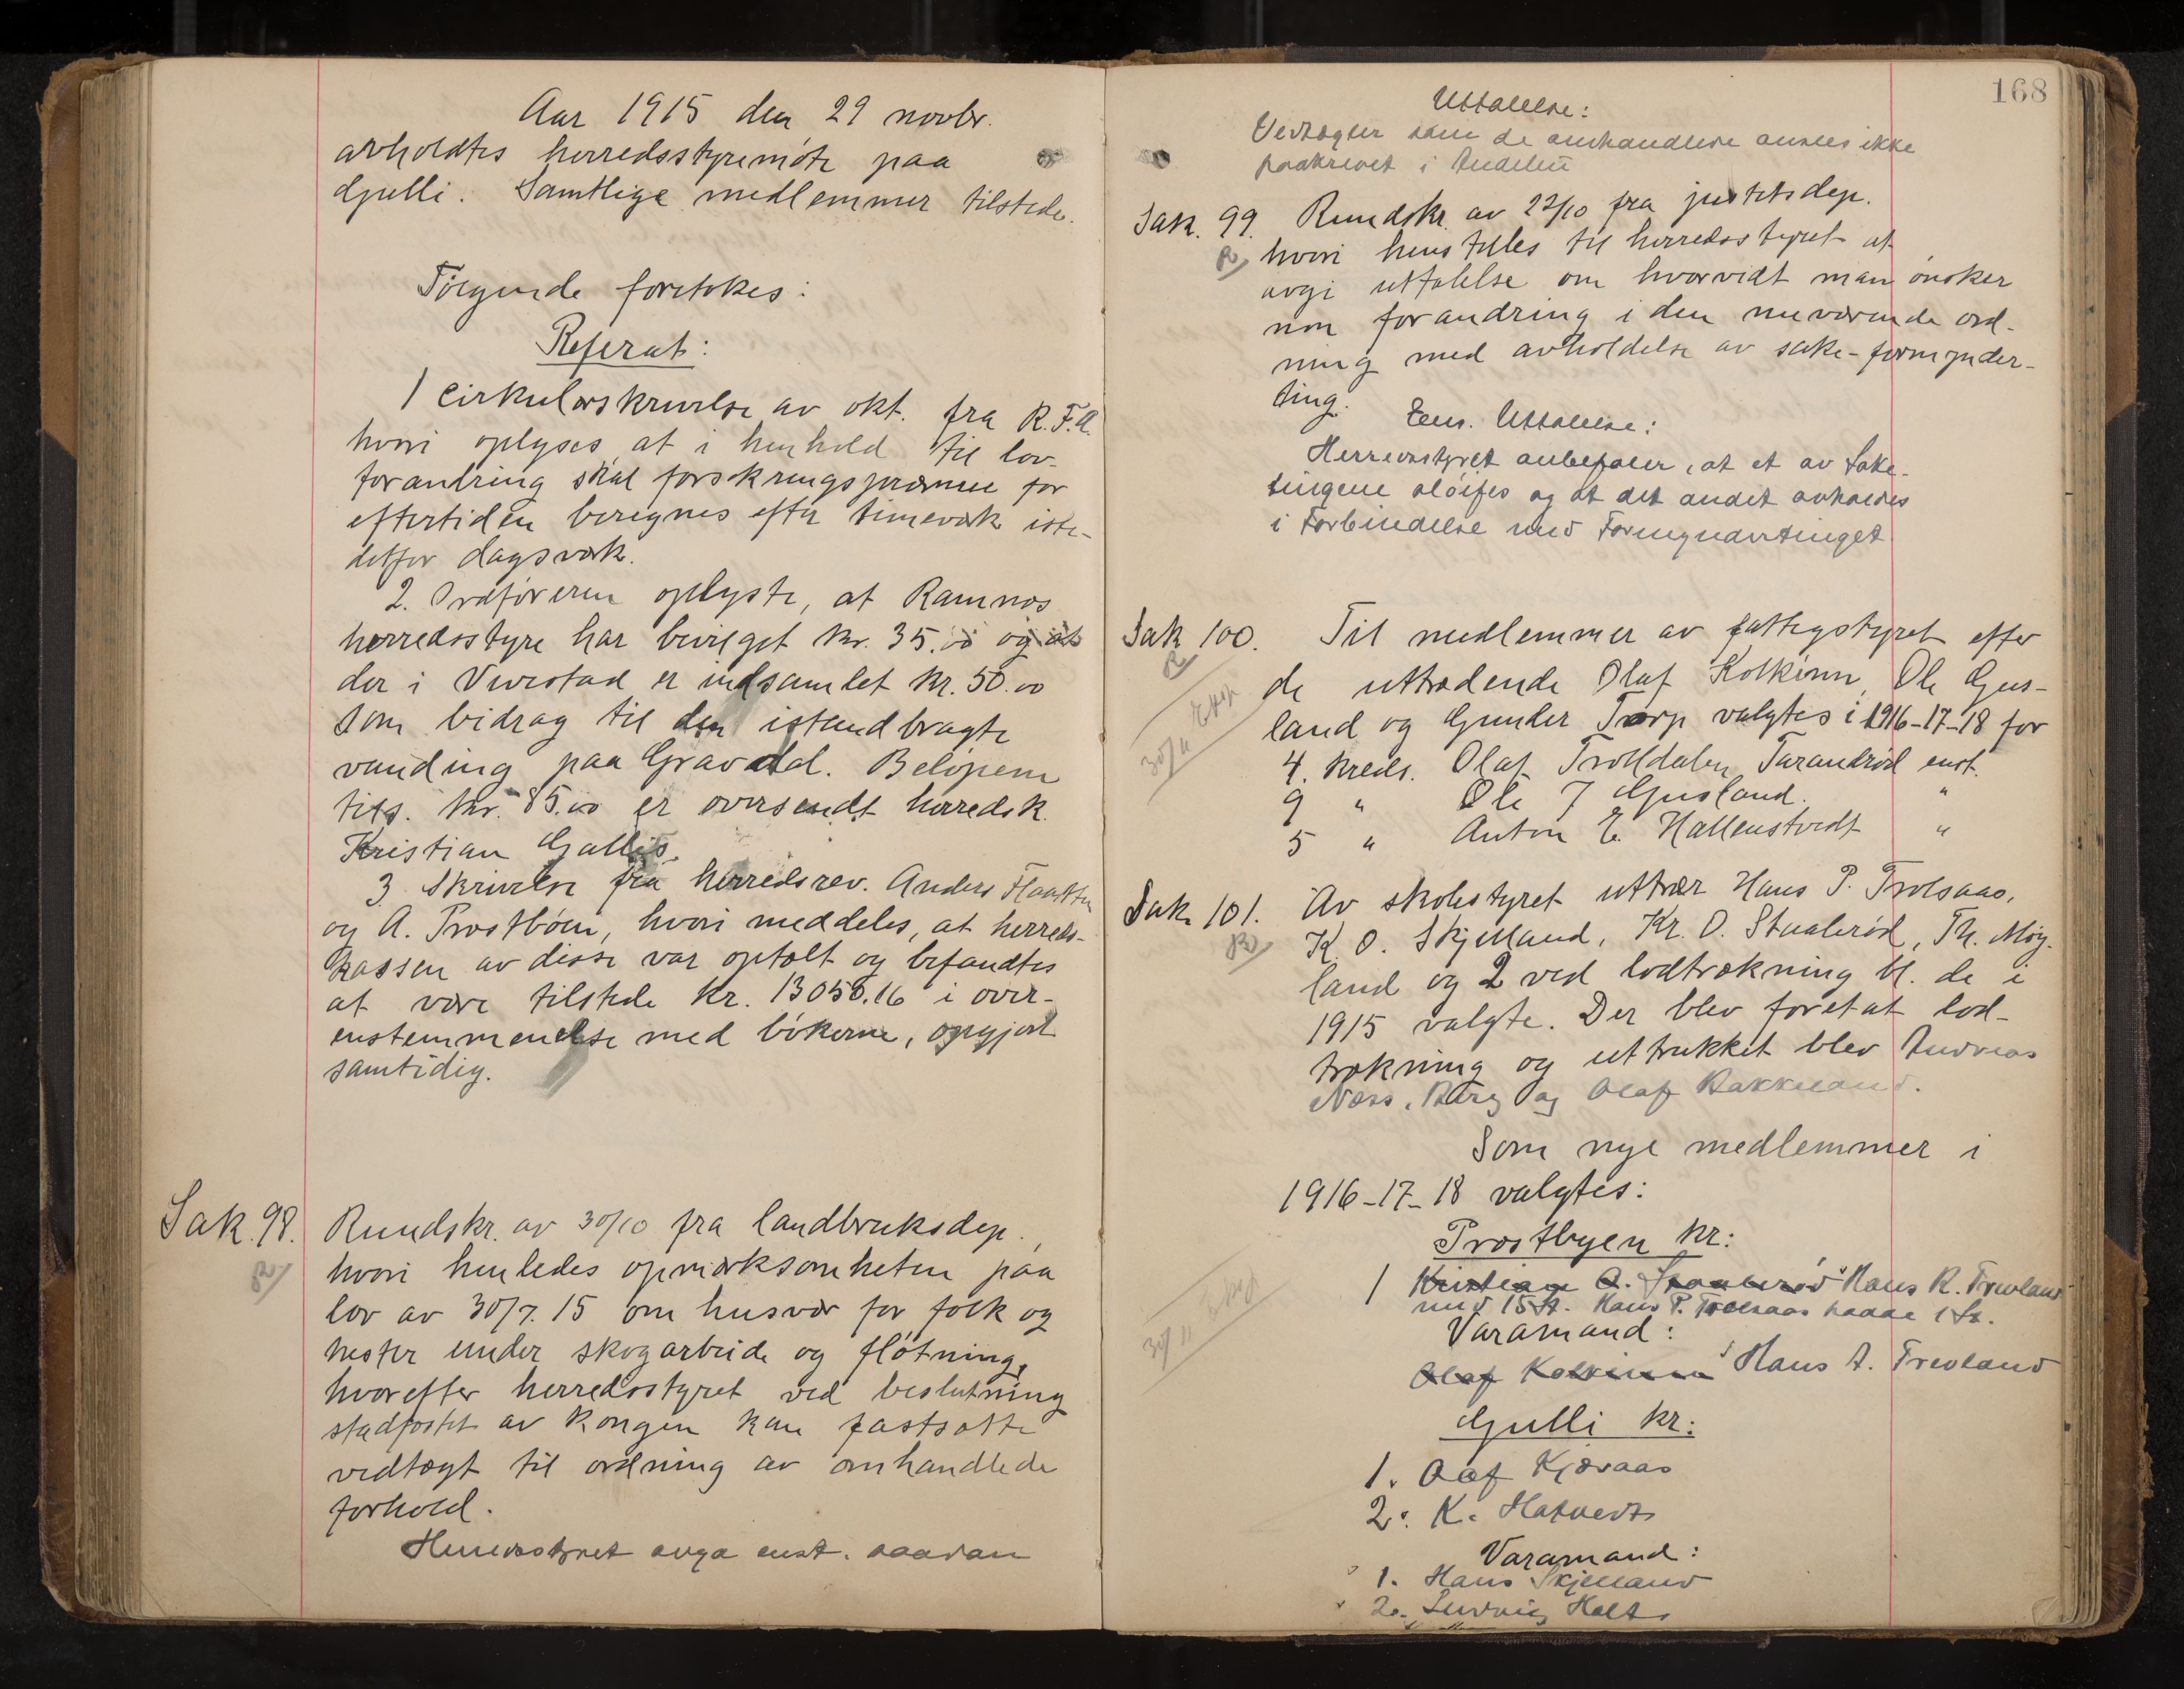 Aar 1915 den 29 novbr.
avholdtes herredsstyremöte paa
Gjulli. Samtlige medlemmer tilstede.
Følgende foretokes:
Referat:
1 Cirkulærskrivelse av okt. fra R.F.A.
hvori oplyses, at i henhold til lov-
forandring skal forsikringspræmie for
eftertiden beregnes efter timeverk iste-
detfor dagsverk.
2. Ordføreren oplyste, at Ramnes
herredsstyre har bevilget kr. 35.00 og at
der i Vivestad er indsamlet kr. 50.00
som bidrag til den istandbragte
vanding paa Gravdal. Beløpene
tils. kr. 85.00 er oversendt herredsk.
Kristian Gallis.
3. Skrivelse fra herredsrev. Anders Flaatten
og A. Prestbøen, hvori meddeles, at herreds-
kassen av disse var optalt og befandtes
at være tilstede kr. 13058.16 i over-
enstemmendelse med bökerne, opgjort
samtidig.
Sak. 98. Rundskr. av 30/10 fra landbruksdep.,
hvori henledes opmerksomheten paa
lov av 30/7.15 om husvær for folk og
hester under skogarbeide og fløtning,
hvorefter herredsstyret ved beslutning
stadfæstet av Kongen kan fastsætte
vedtægt til ordning av omhandlede
forhold.
Herredsstyret avga enst. saadan
168
Uttalelse:
Vedtægter som de omhandlede ansees ikke
paakrevet i Andebu
Sak. 99. Rundskr. av 22/10 fra justitsdep.
hvori henstilles til herredsstyret at
avgi uttalelse om hvorvidt man ønsker
noen forandring i den nuværende ord-
ning med avholdelse av sake-formynder-
ting.
Ens. Uttalelse:
Herredsstyret anbefaler, at et av Sake-
tingene slöifes og at det andet avholdes
i Forbindelse med Formyndertinget
Sak 100. Til medlemmer av fattigstyret efter
de uttrædende Olaf Kolkinn, Ole Gjus-
land og Gunder Torp valgtes i 1916-17-18 for
4. kreds. Olaf Trolldalen Tarandrød enst.
9 " Ole J Gjusland. "
5 " Anton E. Hallenstvedt "
30/11 Eksp
Sak 101. Av skolestyret uttrær Hans P. Trolsaas,
K. O. Skjelland, Kr. O. Staalerød, Th. Møy-
land og 2 ved lodtrækning bl. de i
1915 valgte. Der blev foretat lod-
trækning og uttrukket blev Andreas
Næss, Berg og Olaf Bakkeland.
Som nye medlemmer i
1916-17-18 valgtes:
Prestbyen kr:
1 Kristian A. Staalerød Hans R. Trevland
med 15 St. Hans P. Trolsaas hadde 1 St.
30/11 Eksp
Varamand:
Olaf Kolkinn Hans A. Trevland
Gjulli kr:
1. Olaf Kjæraas
2. K. Hatvedt
Varamand:
1. Hans Skjelland
2. Ludvig Holt